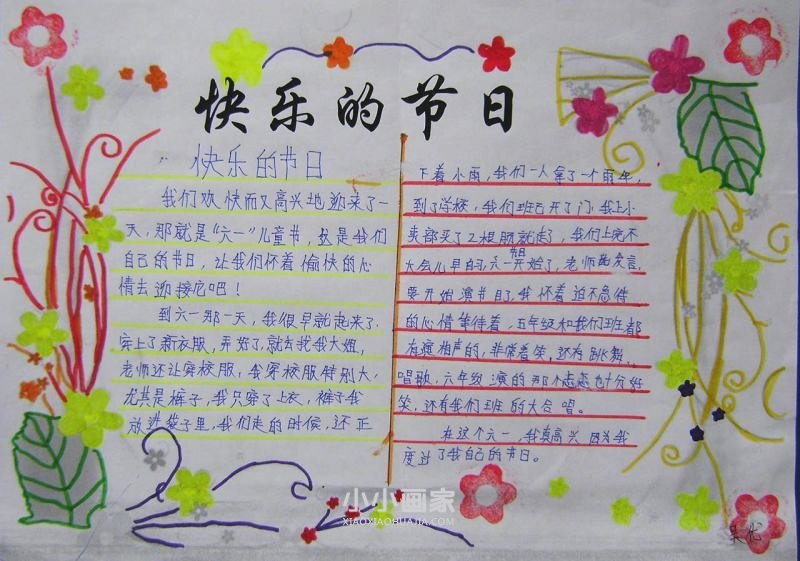 快乐的节日
快乐的节日
我们欢快而又高兴地迎来了一
天，那就是“六一”儿童节，这是我们
自己的节日，让我们怀着愉快的心
情去迎接它吧！
到六一那一天，我很早就起来了.
穿上了新衣服，弄好了，就去找我大姐，
老师还让穿校服，我穿校服特别大，
尤其是裤子，我只穿了上衣，裤子我
放进袋子里，我们走的时候，还正
下着小雨，我们一人拿了一个雨伞，
到了学校，我们班已开了门，我上小
卖部买了2根就走了，我们上完不
大会儿早自习，六一节目开始了，老师发言，
要开始演节目了，我怀着迫不急待
的心情等待着，五年级和我们班都
有演相声的，非常搞笑，还有跳舞、
唱歌，六年级演的那个也十分好
笑，还有我们班的大合唱。
在这个六一，我真高兴因为我
度过了我自己的节日。
小小画家
XIAOXIAOHUAJIA.COM